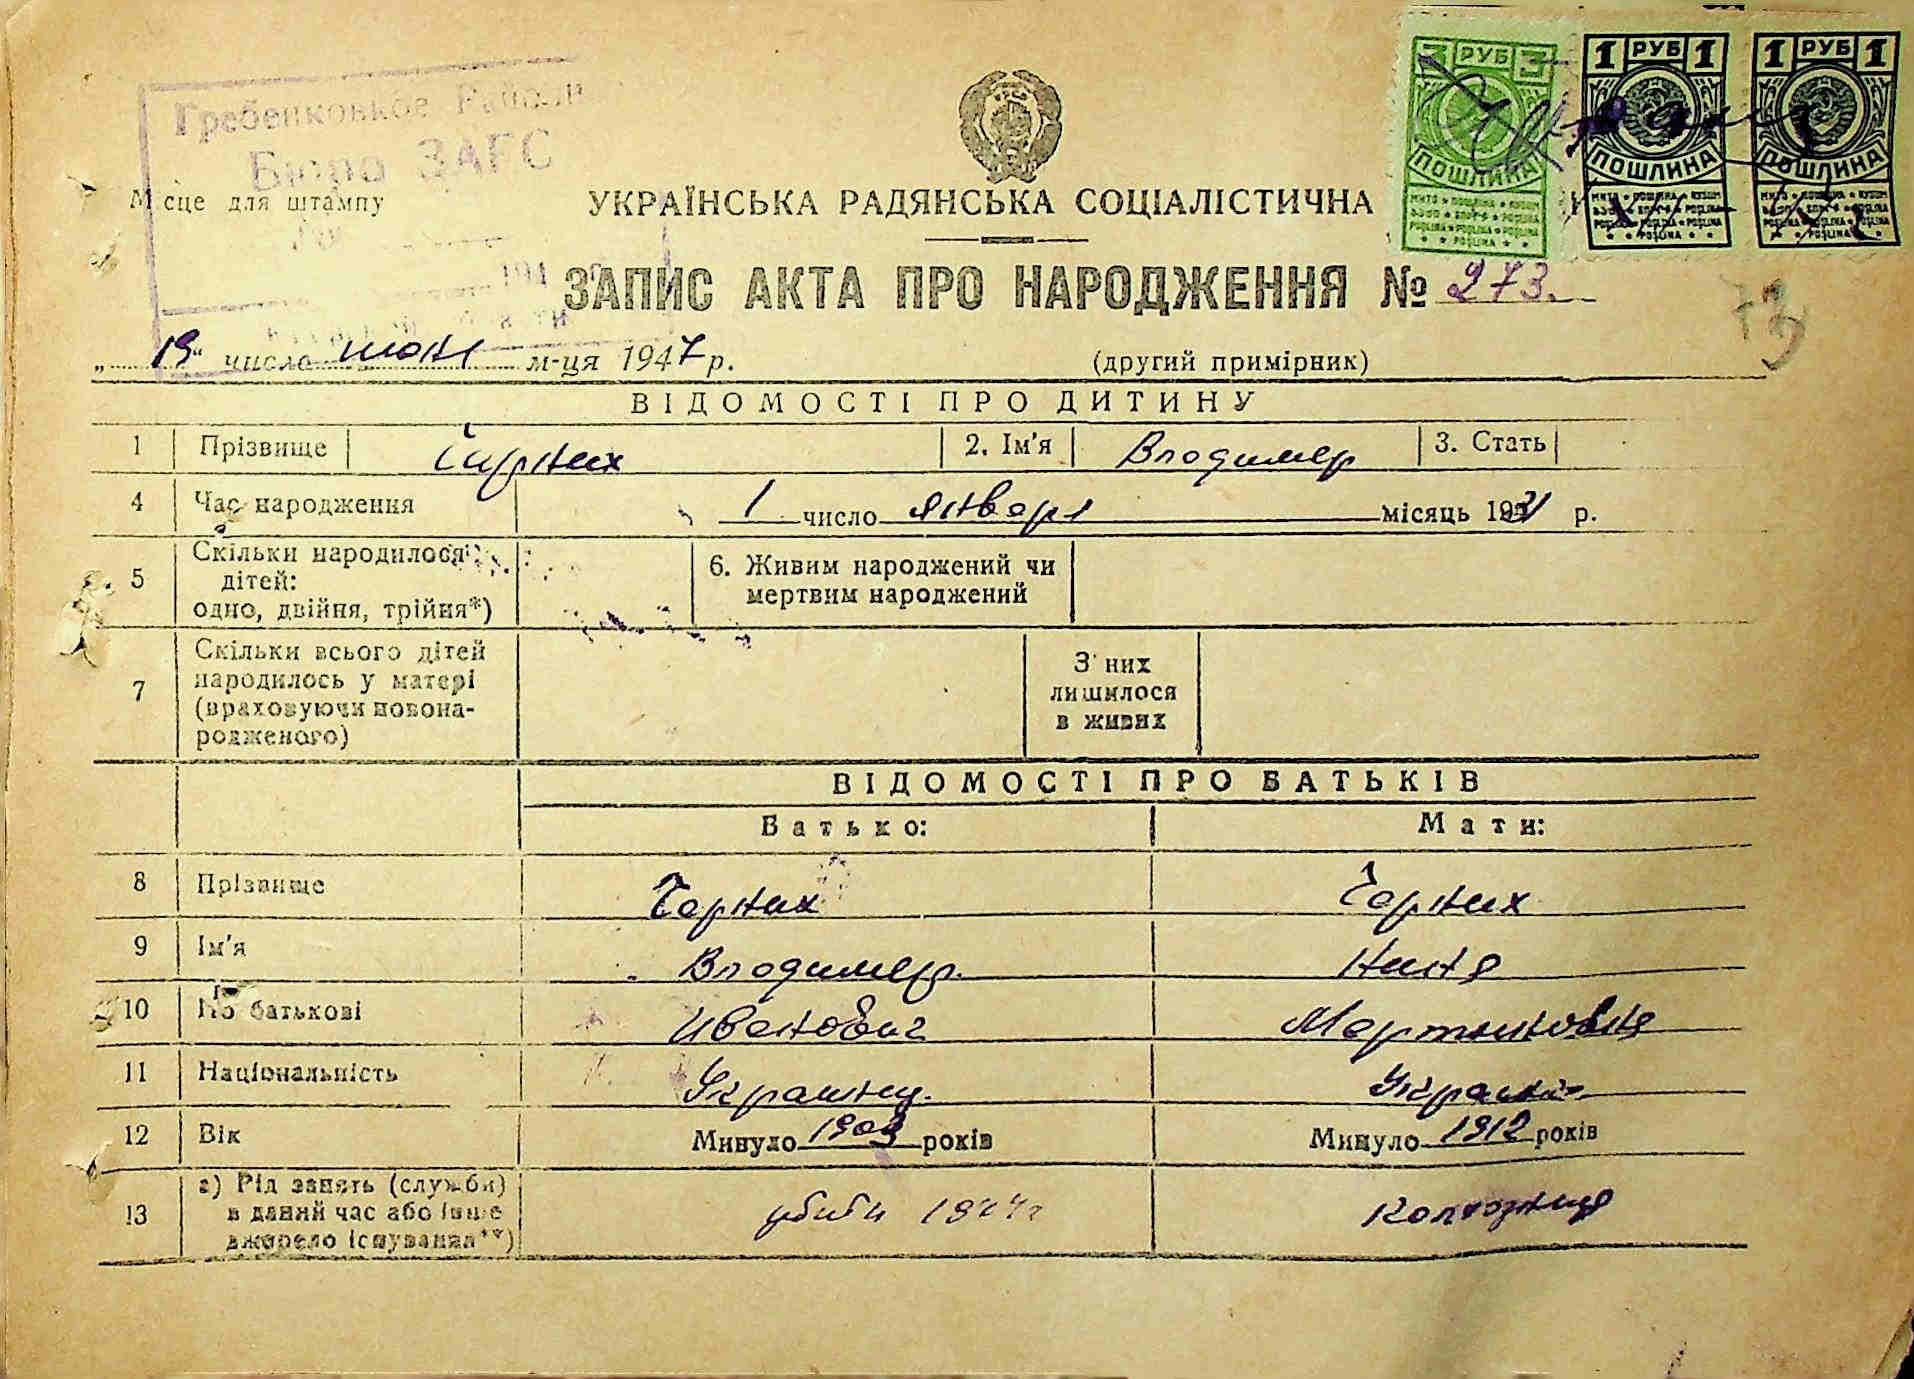 3 РУБ 3
ПОШЛИНА
МИТО ★ ПОШЛИНА ★
POŠLINA ★ POŠLINA ★ POŠLINA
★ ★ POŠLINA ★ ★
1 РУБ 1
ПОШЛИНА
1 РУБ 1
ПОШЛИНА
Гребенковкое
Бюро ЗАГС
Місце для штампу
194
УКРАЇНСЬКА РАДЯНСЬКА СОЦІАЛІСТИЧНА
ЗАПИС АКТА ПРО НАРОДЖЕННЯ № 273.
73
„ 19 “ число июня м-ця 1947 р.
(другий примірник)
ВІДОМОСТІ ПРО ДИТИНУ
1 Прізвище Чорних 2. Ім'я Владимер 3. Стать
4 Час народження 1 число января місяць 1931 р.
5 Скільки народилося
дітей:
одно, двійня, трійня*)
6. Живим народжений чи
мертвим народжений
7 Скільки всього дітей
народилось у матері
(враховуючи новона-
родженого)
З них
лишилося
в живих
ВІДОМОСТІ ПРО БАТЬКІВ
Батько: Мати:
8 Прізвище Чорних Чорних
9 Ім'я Владимер. Нина
10 По батькові Иванович Мартиновна
11 Національність Украинц. Украин.
12 Вік Минуло 1903 років Минуло 1912 років
13 а) Рід занять (служби)
в даний час або інше
джерело існування**)
убити 1944г Колхозница